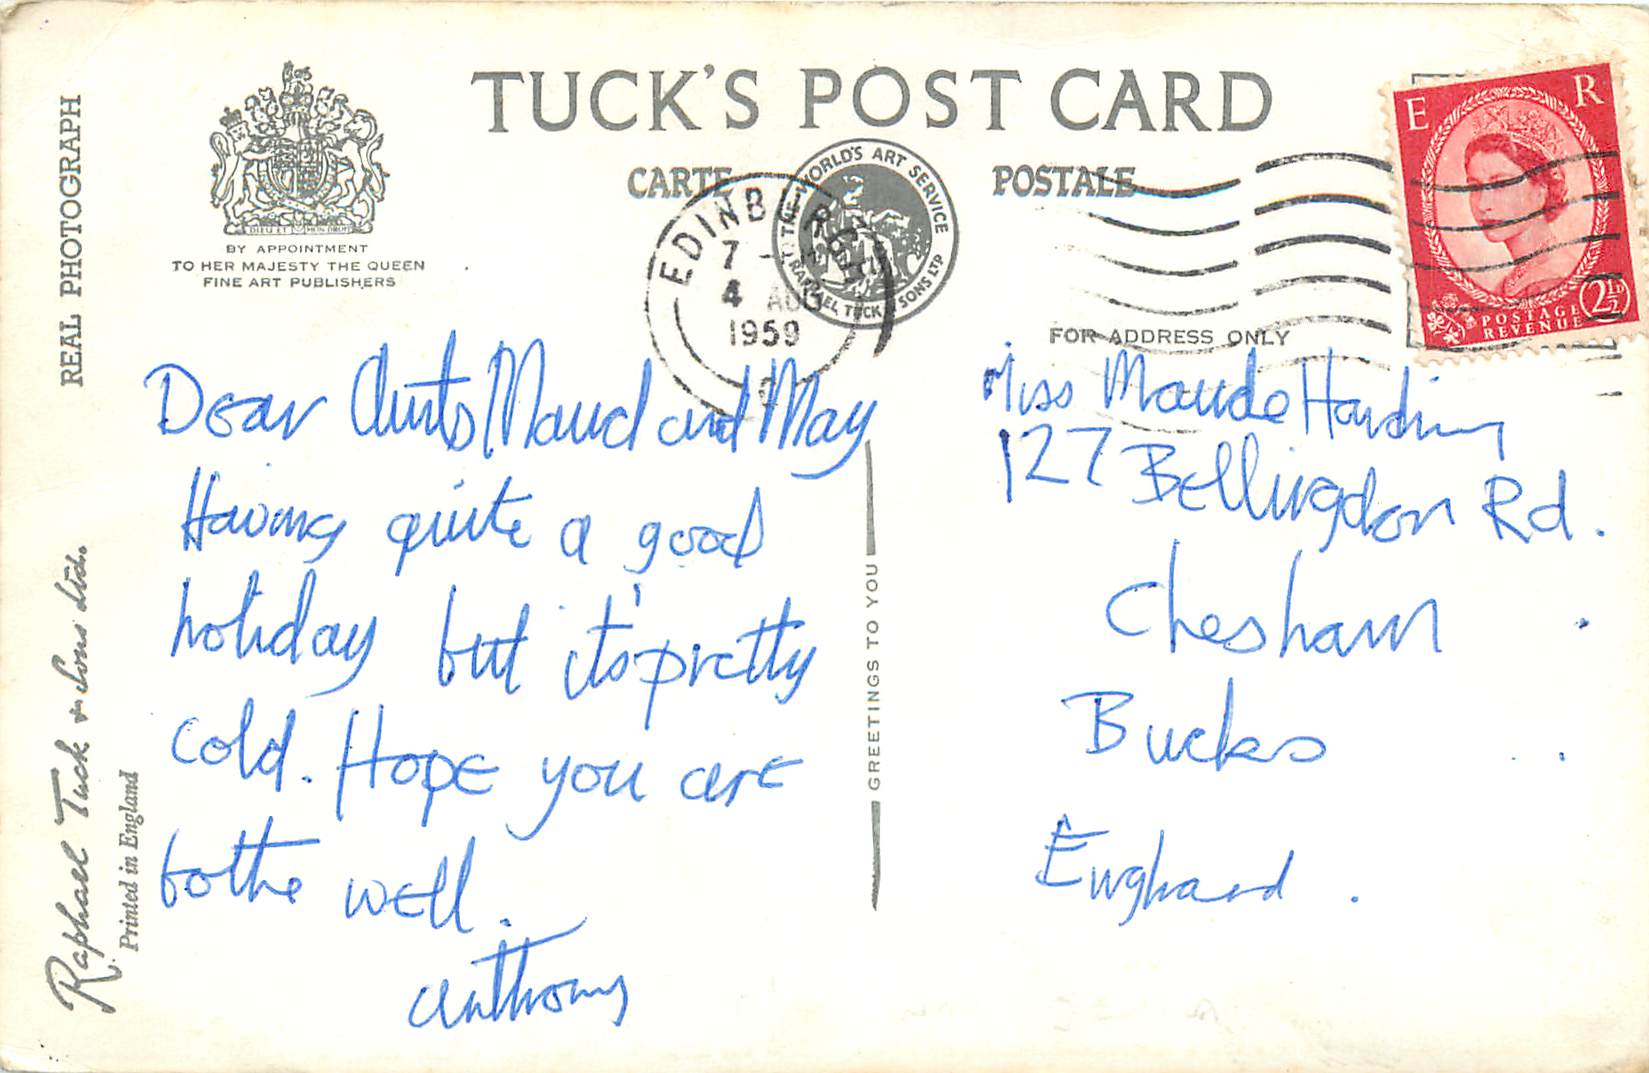 TUCK'S POST CARD
CARTE POSTALE
REAL PHOTOGRAPH
DIEU ET MON DROIT
BY APPOINTMENT
TO HER MAJESTY THE QUEEN
FINE ART PUBLISHERS
THE WORLD'S ART SERVICE
RAPHAEL TUCK & SONS LTD
EDINBURGH
7 -
4 AUG
1959
E R
2½D
POSTAGE
REVENUE
FOR ADDRESS ONLY
Dear Aunts Maud and May
Having quite a good
holiday but it's pretty
cold. Hope you are
bothe well.
Anthony
GREETINGS TO YOU
Miss Maude Harding
127 Bellingdon Rd.
Chesham
Bucks
England.
Raphael Tuck & Sons Ltd.
Printed in England